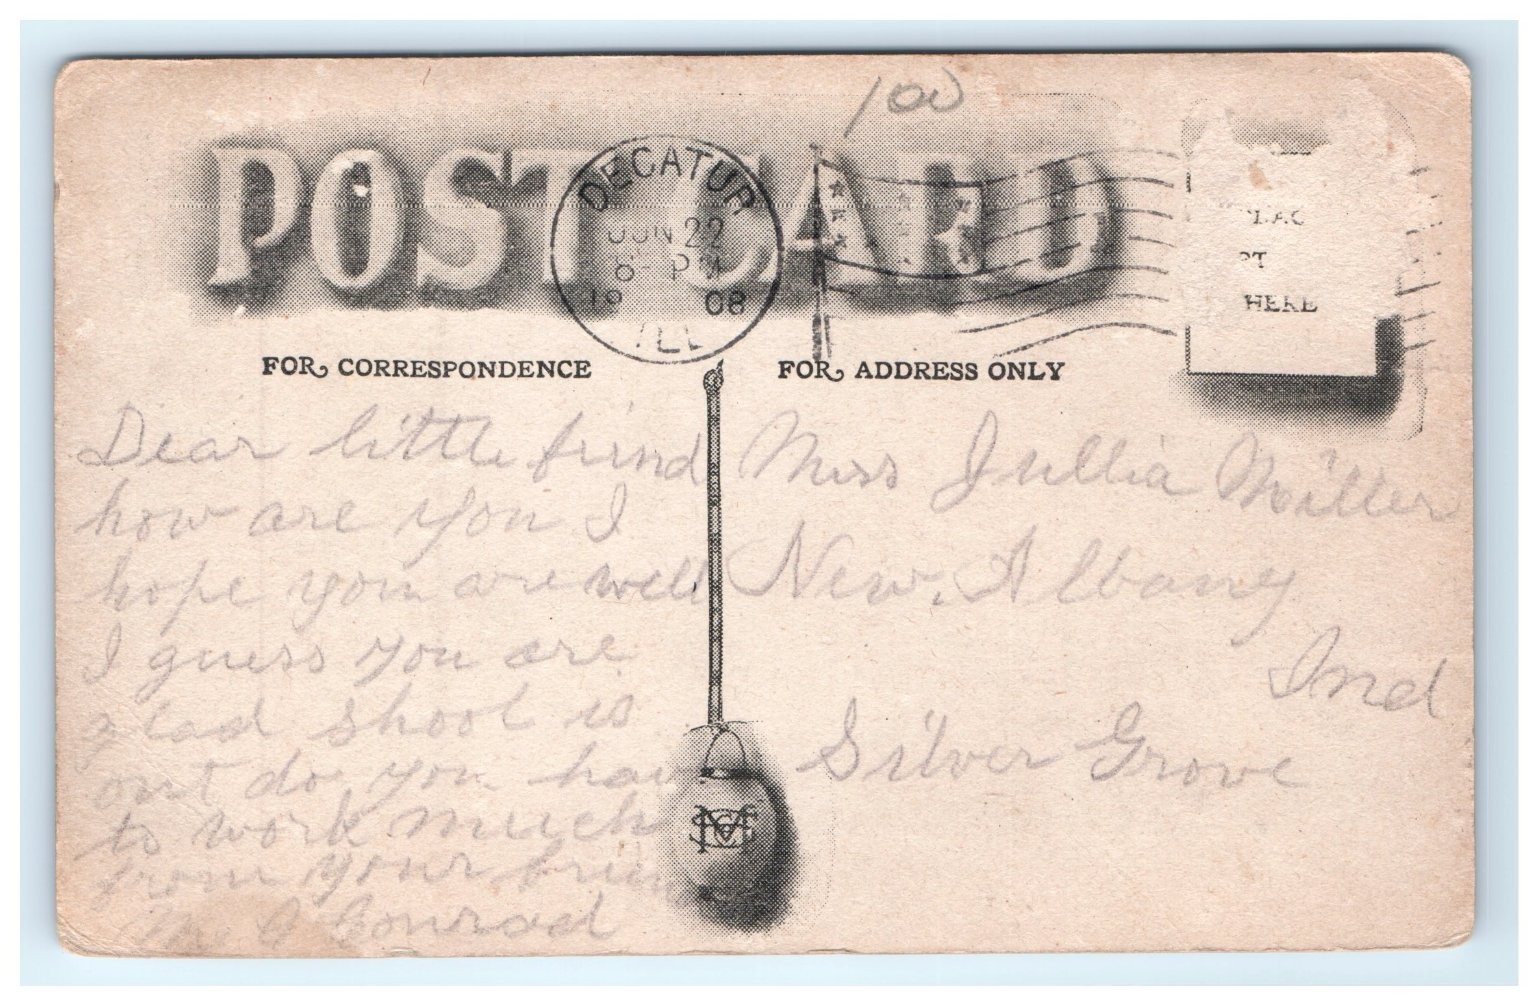 100
POST CARD
DECATUR
JUN 22
8 PM
19 08
ILL
HERE
FOR CORRESPONDENCE
FOR ADDRESS ONLY
Dear little frind
how are you I
hope you are well
I guess you are
glad shool is
out do you hav
to work much
from your frin
Conrad
Miss Jullia Miller
New. Albany
Ind
Silver Grove